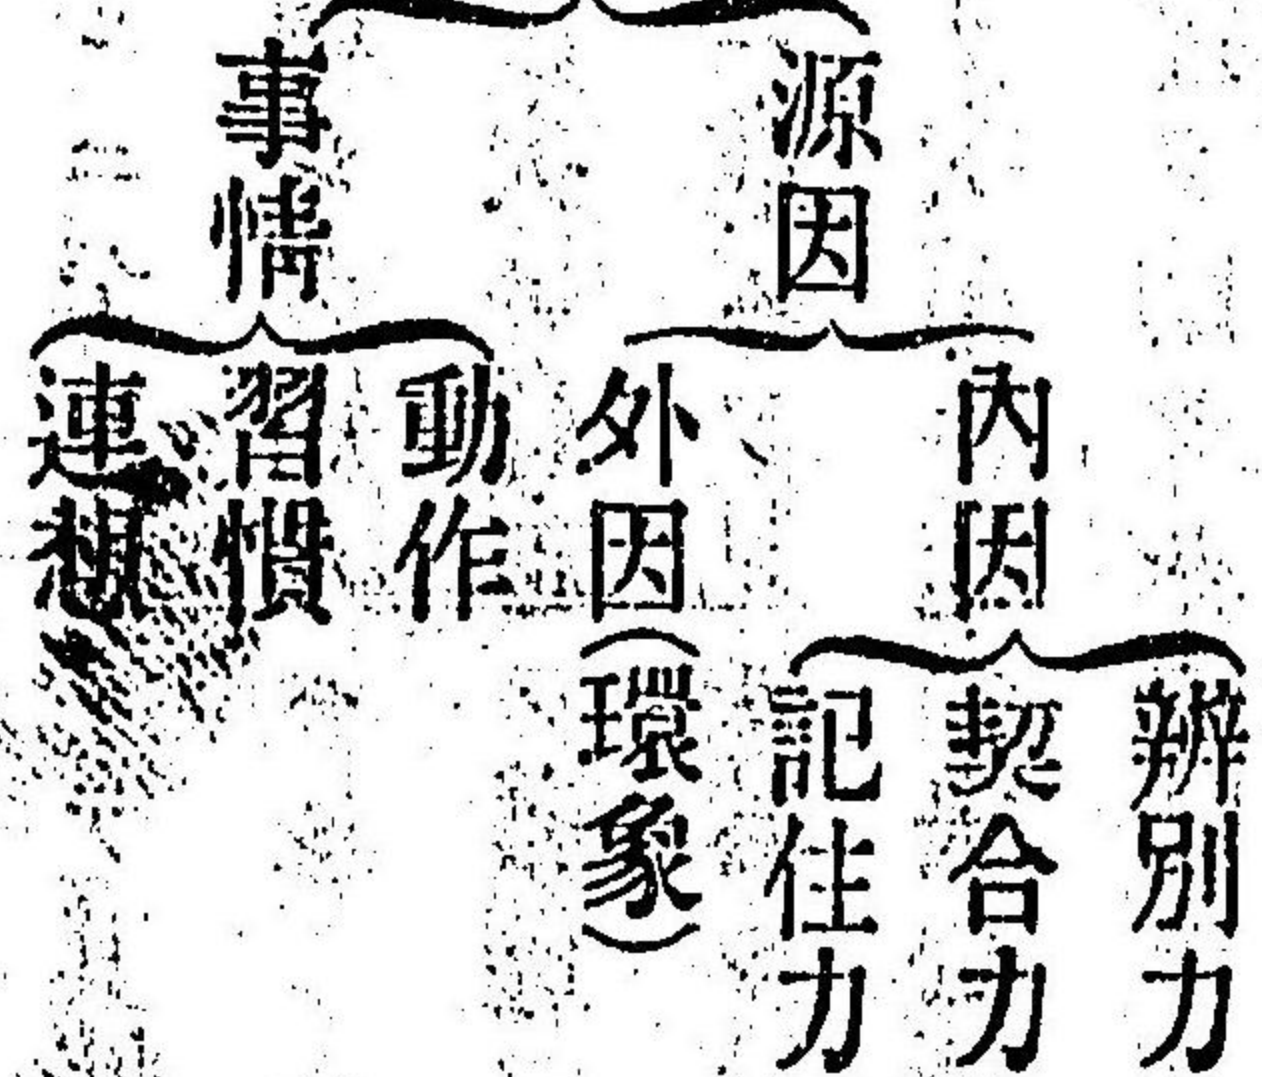 源因
內因
辨別力
契合力
記住力
外因(環象)
事情
動作
習慣
連想